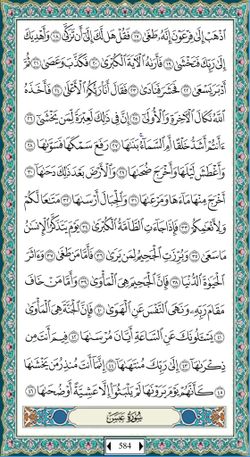 ٱذْهَبْ إِلَىٰ فِرْعَوْنَ إِنَّهُۥ طَغَىٰ ١٧ فَقُلْ هَل لَّكَ إِلَىٰٓ أَن تَزَكَّىٰ ١٨ وَأَهْدِيَكَ
إِلَىٰ رَبِّكَ فَتَخْشَىٰ ١٩ فَأَرَىٰهُ ٱلْـَٔايَةَ ٱلْكُبْرَىٰ ٢٠ فَكَذَّبَ وَعَصَىٰ ٢١ ثُمَّ
أَدْبَرَ يَسْعَىٰ ٢٢ فَحَشَرَ فَنَادَىٰ ٢٣ فَقَالَ أَنَا۠ رَبُّكُمُ ٱلْأَعْلَىٰ ٢٤ فَأَخَذَهُ
ٱللَّهُ نَكَالَ ٱلْـَٔاخِرَةِ وَٱلْأُولَىٰٓ ٢٥ إِنَّ فِى ذَٰلِكَ لَعِبْرَةً لِّمَن يَخْشَىٰٓ ٢٦
ءَأَنتُمْ أَشَدُّ خَلْقًا أَمِ ٱلسَّمَآءُ ۚ بَنَىٰهَا ٢٧ رَفَعَ سَمْكَهَا فَسَوَّىٰهَا ٢٨
وَأَغْطَشَ لَيْلَهَا وَأَخْرَجَ ضُحَىٰهَا ٢٩ وَٱلْأَرْضَ بَعْدَ ذَٰلِكَ دَحَىٰهَآ ٣٠
أَخْرَجَ مِنْهَا مَآءَهَا وَمَرْعَىٰهَا ٣١ وَٱلْجِبَالَ أَرْسَىٰهَا ٣٢ مَتَـٰعًا لَّكُمْ
وَلِأَنْعَـٰمِكُمْ ٣٣ فَإِذَا جَآءَتِ ٱلطَّآمَّةُ ٱلْكُبْرَىٰ ٣٤ يَوْمَ يَتَذَكَّرُ ٱلْإِنسَـٰنُ
مَا سَعَىٰ ٣٥ وَبُرِّزَتِ ٱلْجَحِيمُ لِمَن يَرَىٰ ٣٦ فَأَمَّا مَن طَغَىٰ ٣٧ وَءَاثَرَ
ٱلْحَيَوٰةَ ٱلدُّنْيَا ٣٨ فَإِنَّ ٱلْجَحِيمَ هِىَ ٱلْمَأْوَىٰ ٣٩ وَأَمَّا مَنْ خَافَ
مَقَامَ رَبِّهِۦ وَنَهَى ٱلنَّفْسَ عَنِ ٱلْهَوَىٰ ٤٠ فَإِنَّ ٱلْجَنَّةَ هِىَ ٱلْمَأْوَىٰ ٤١
يَسْـَٔلُونَكَ عَنِ ٱلسَّاعَةِ أَيَّانَ مُرْسَىٰهَا ٤٢ فِيمَ أَنتَ مِن
ذِكْرَىٰهَآ ٤٣ إِلَىٰ رَبِّكَ مُنتَهَىٰهَآ ٤٤ إِنَّمَآ أَنتَ مُنذِرُ مَن يَخْشَىٰهَا
٤٥ كَأَنَّهُمْ يَوْمَ يَرَوْنَهَا لَمْ يَلْبَثُوٓا۟ إِلَّا عَشِيَّةً أَوْ ضُحَىٰهَا ٤٦
سُورَةُ عَبَسَ
584